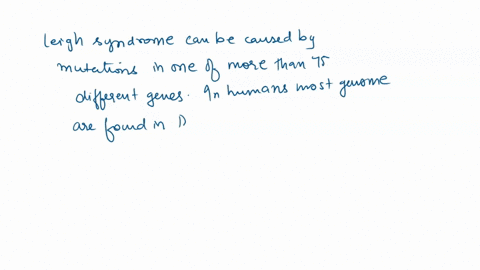 leigh syndrome can be caused by
mutations in one of more than 75
different genes. In humans most genome
are found in D